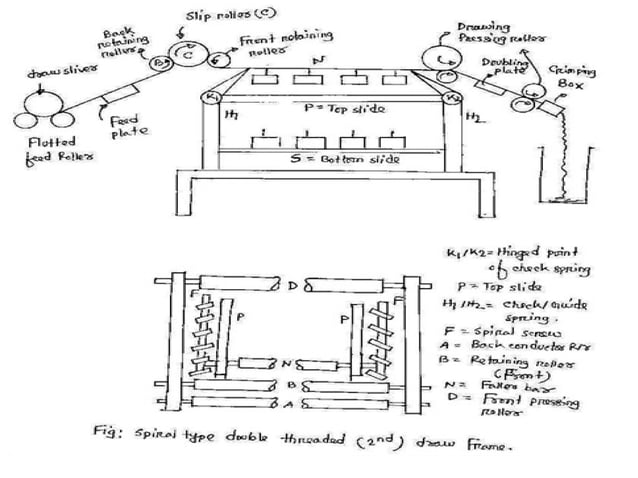 Slip roller (C)
Back
retaining
roller
Front retaining
roller
draw sliver
B
C
N
Drawing
Pressing roller
Doubling
plate
Crimping
Box
K1
K2
P = Top slide
H1
H2
Feed
plate
Flutted
feed Roller
S = Bottom slide
K1/K2 = Hinged point
of check spring
P = Top slide
H1/H2 = Check/Guide
spring.
F = Spiral screw
A = Back conductor R/r
B = Retaining roller
(Front)
N = Faller bar
D = Front pressing
roller
D
F
F
P
P
N
B
A
Fig: Spiral type double threaded (2nd) draw frame.